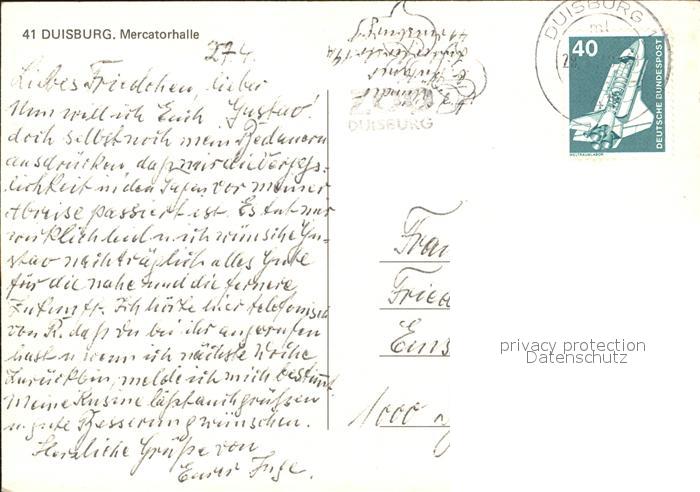 41 DUISBURG. Mercatorhalle
27.4.
Liebes Friedchen, lieber
Nun will ich Euch Gustav!
doch selbst noch mein Bedauern
ausdrücken, daß mir die Vergeß-
lichkeit in den Tagen vor meiner
Abreise passiert ist. Es tut mir
wirklich leid u. ich wünsche Gu-
stav nachträglich alles Gute
für die nahe und die fernere
Zukunft. Ich hörte hier telefonisch
von R. daß du bei ihr angerufen
hast u. wenn ich nächste Woche
zurück bin, melde ich mich bestimmt.
Meine Kusine läßt auch grüßen
u. gute Besserung wünschen.
Herzliche Grüße von
Eurer Inge.
ZOO
DUISBURG
DUISBURG 1
ml
40
DEUTSCHE BUNDESPOST
WELTRAUMLABOR
Frau
Fried
Eins
1000
privacy protection
Datenschutz